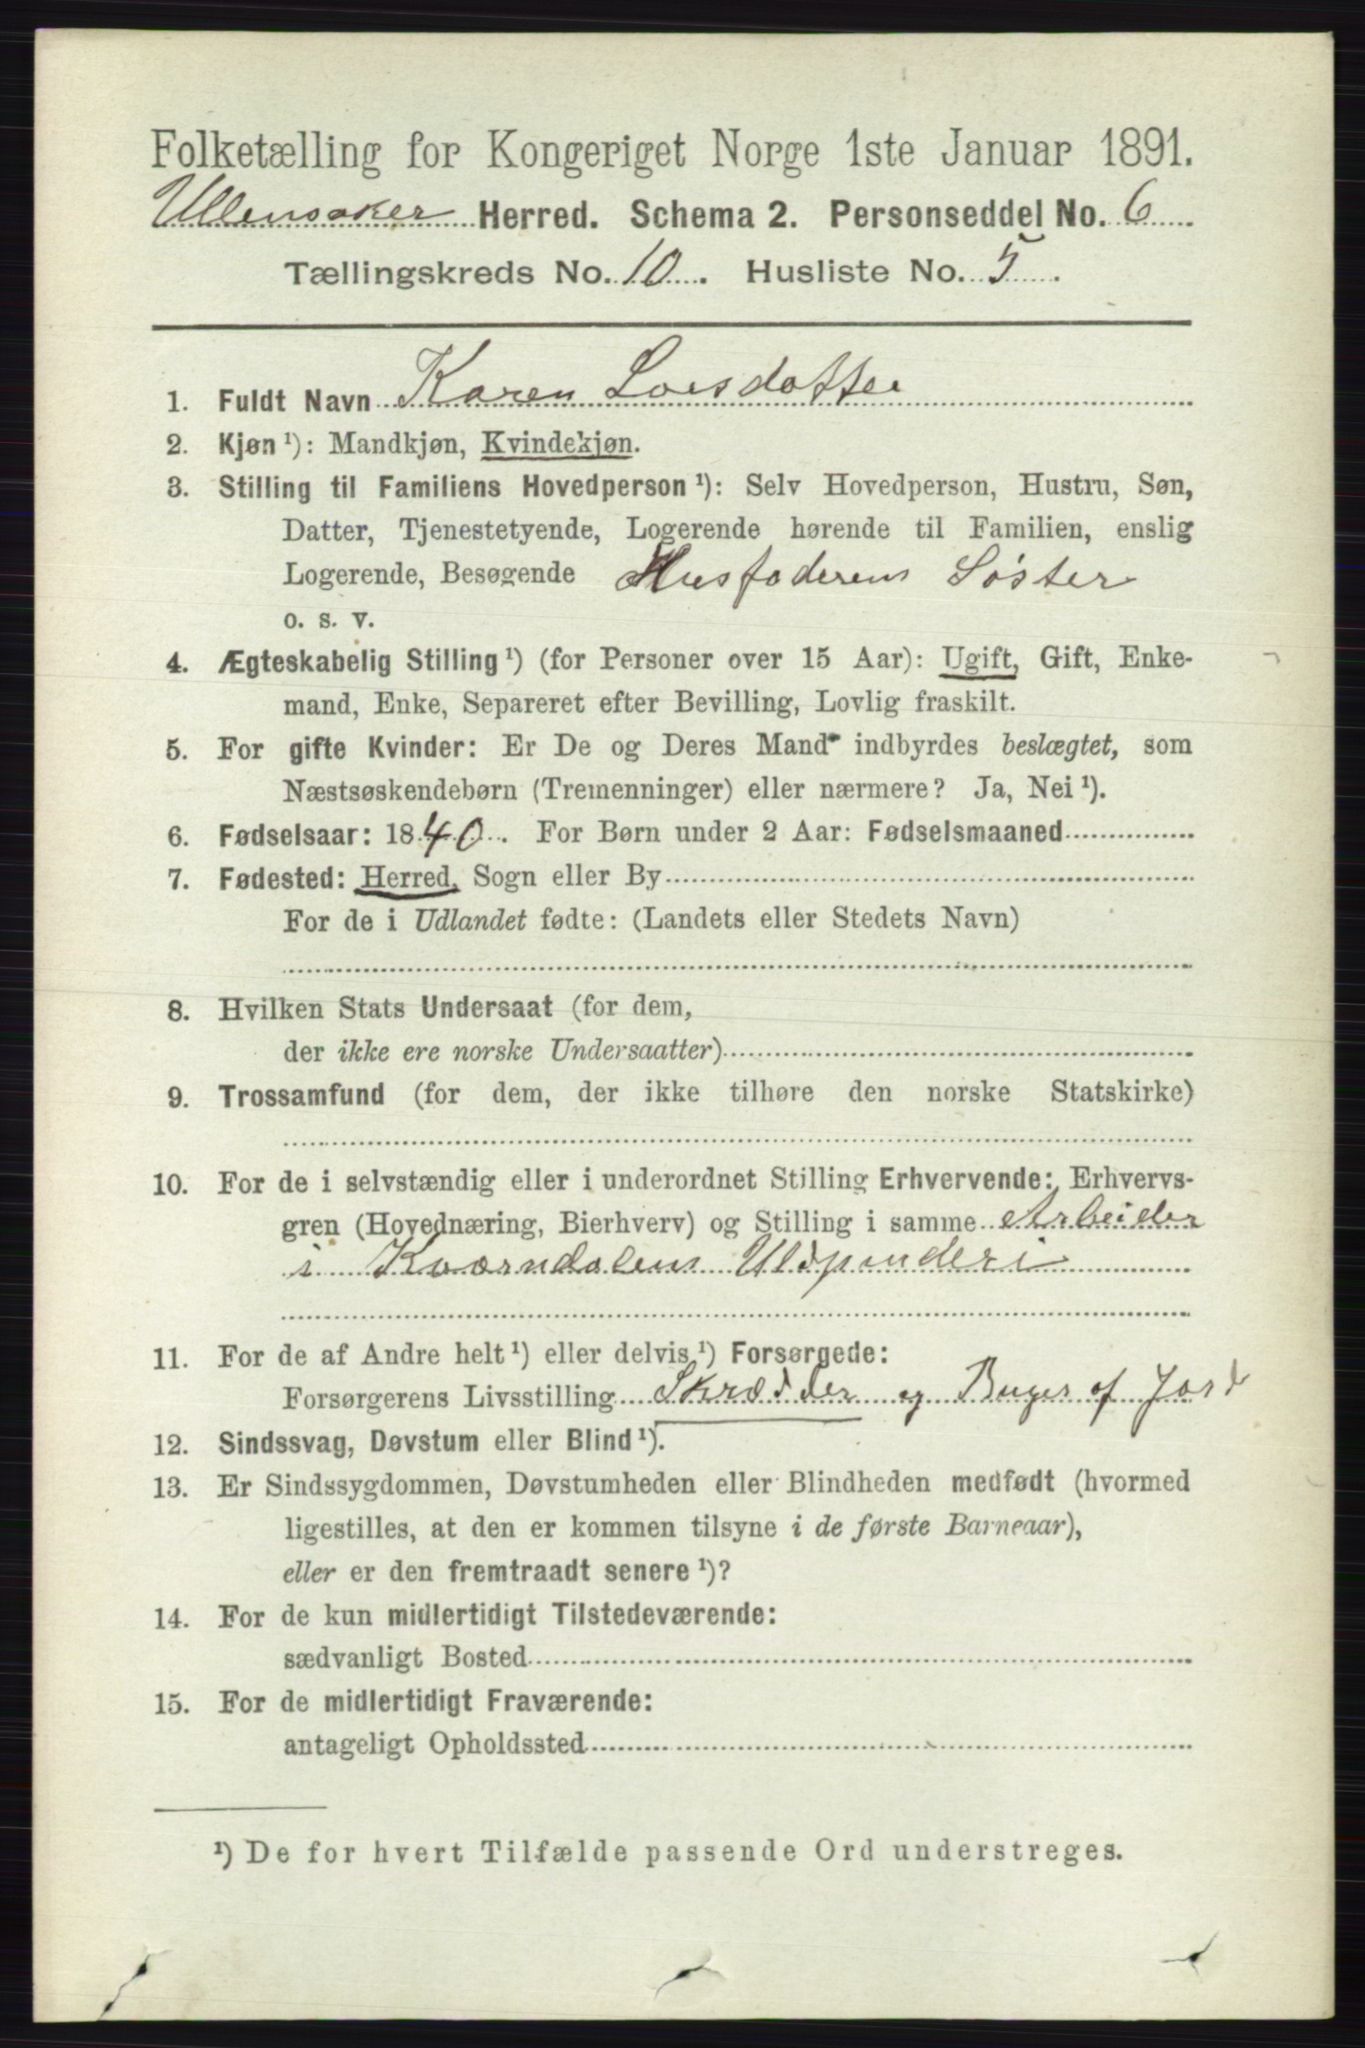 Folketælling for Kongeriget Norge 1ste Januar 1891.
Ullensaker Herred. Schema 2. Personseddel No. 6
Tællingskreds No. 10. Husliste No. 5.
1. Fuldt Navn Karen Larsdatter
2. Kjøn ¹): Mandkjøn, Kvindekjøn.
3. Stilling til Familiens Hovedperson ¹): Selv Hovedperson, Hustru, Søn,
Datter, Tjenestetyende, Logerende hørende til Familien, enslig
Logerende, Besøgende Husfaderens Søster
o. s. v.
4. Ægteskabelig Stilling ¹) (for Personer over 15 Aar): Ugift, Gift, Enke-
mand, Enke, Separeret efter Bevilling, Lovlig fraskilt.
5. For gifte Kvinder: Er De og Deres Mand indbyrdes beslægtet, som
Næstsøskendebørn (Tremenninger) eller nærmere? Ja, Nei ¹).
6. Fødselsaar: 1840. For Børn under 2 Aar: Fødselsmaaned
7. Fødested: Herred, Sogn eller By
For de i Udlandet fødte: (Landets eller Stedets Navn)
8. Hvilken Stats Undersaat (for dem,
der ikke ere norske Undersaatter)
9. Trossamfund (for dem, der ikke tilhøre den norske Statskirke)
10. For de i selvstændig eller i underordnet Stilling Erhvervende: Erhvervs-
gren (Hovednæring, Bierhverv) og Stilling i samme Arbeider
i Kværndalens Uldspinderi
11. For de af Andre helt ¹) eller delvis ¹) Forsørgede:
Forsørgerens Livsstilling Skrædder og Bruger af Jord
12. Sindssvag, Døvstum eller Blind ¹).
13. Er Sindssygdommen, Døvstumheden eller Blindheden medfødt (hvormed
ligestilles, at den er kommen tilsyne i de første Barneaar),
eller er den fremtraadt senere ¹)?
14. For de kun midlertidigt Tilstedeværende:
sædvanligt Bosted
15. For de midlertidigt Fraværende:
antageligt Opholdssted
¹) De for hvert Tilfælde passende Ord understreges.